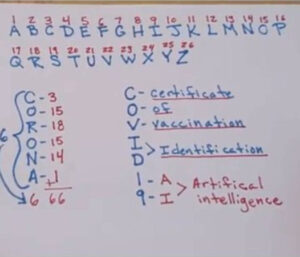 1 2 3 4 5 6 7 8 9 10 11 12 13 14 15 16
A B C D E F G H I J K L M N O P
17 18 19 20 21 22 23 24 25 26
Q R S T U V W X Y Z
C - 3
O - 15
R - 18
O - 15
N - 14
A - +1
6 66
6
C - certificate
O - of
V - vaccination
I
D > Identification
1 - A
9 - I > Artifical intelligence